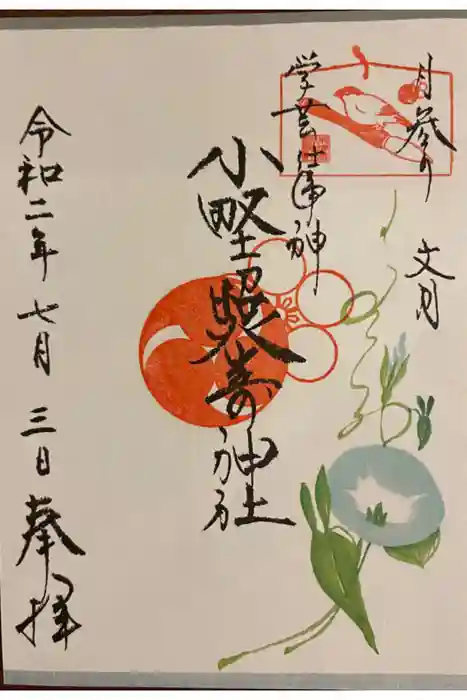 月参り 文月
学芸仕事神
小野照嵜神社
令和二年七月三日奉拝